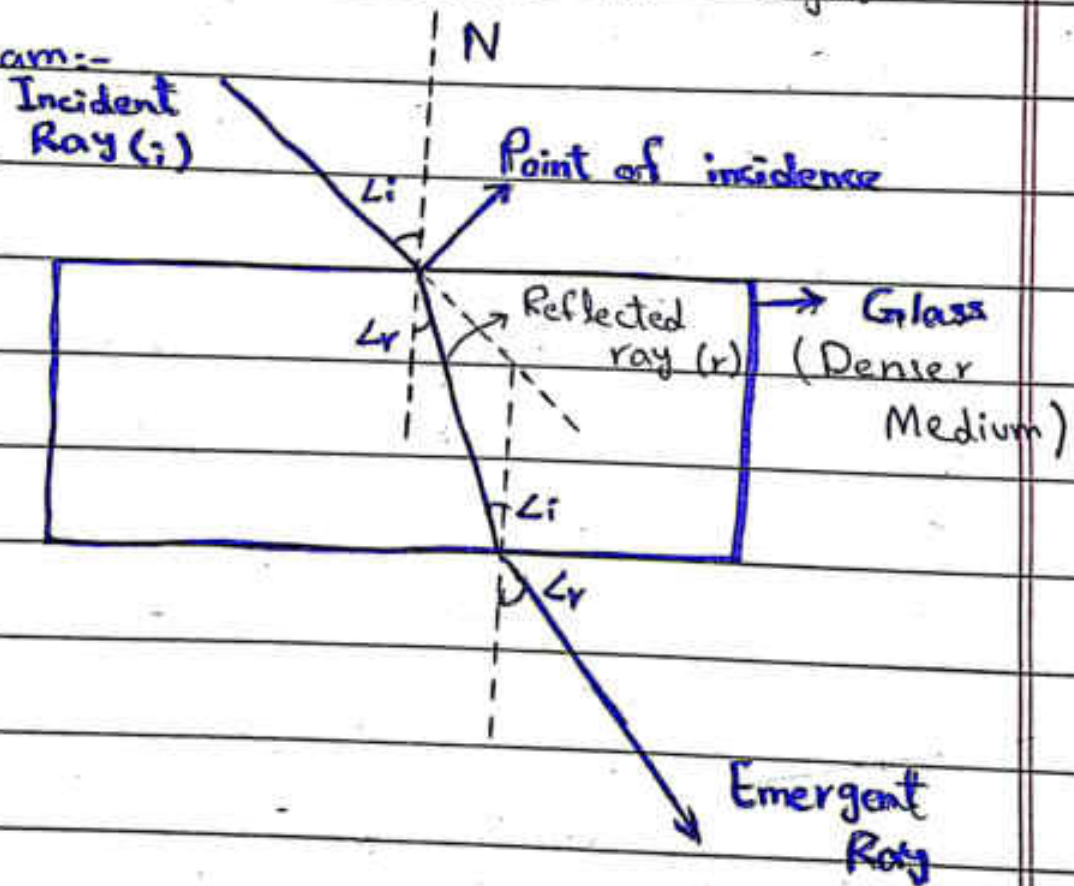 N
am:-
Incident
Ray (i)
∠i
Point of incidence
Reflected
ray (r)
∠r
Glass
(Denser
Medium)
∠i
∠r
Emergent
Ray